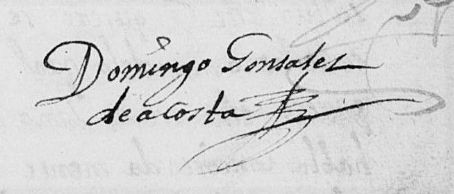 Domingo Gonsales
deacosta